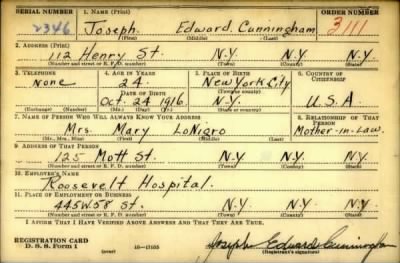 SERIAL NUMBER 1. NAME (Print) ORDER NUMBER
2346 Joseph Edward Cunningham 3111
(First) (Middle) (Last)
2. ADDRESS (Print)
112 Henry St. N.Y. N.Y.
(Number and street or R. F. D. number) (Town) (County) (State)
3. TELEPHONE 4. AGE IN YEARS 5. PLACE OF BIRTH 6. COUNTRY OF CITIZENSHIP
None 24 New York City
DATE OF BIRTH (Town or county)
Oct. 24 1916 N.Y. U.S.A
(Exchange) (Number) (Mo.) (Day) (Yr.) (State or country)
7. NAME OF PERSON WHO WILL ALWAYS KNOW YOUR ADDRESS 8. RELATIONSHIP OF THAT PERSON
Mrs. Mary LoNigro Mother-in-Law.
(Mr., Mrs., Miss) (First) (Middle) (Last)
9. ADDRESS OF THAT PERSON
125 Mott St. N.Y. N.Y. N.Y.
(Number and street or R. F. D. number) (Town) (County) (State)
10. EMPLOYER'S NAME
Roosevelt Hospital.
11. PLACE OF EMPLOYMENT OR BUSINESS
445 W 58 St. N.Y. N.Y. N.Y.
(Number and street or R. F. D. number) (Town) (County) (State)
I AFFIRM THAT I HAVE VERIFIED ABOVE ANSWERS AND THAT THEY ARE TRUE.
REGISTRATION CARD
D. S. S. Form 1 (over) 16—17105 Joseph Edward Cunningham
(Registrant's signature)